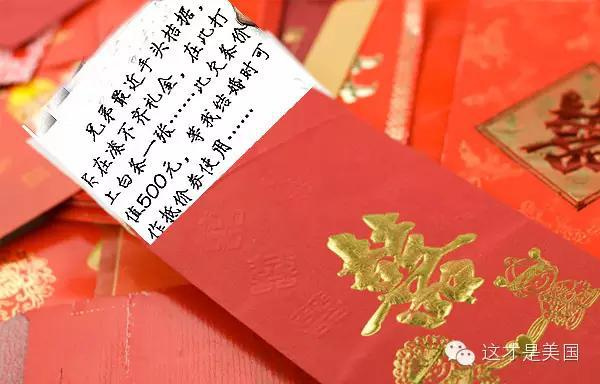 兄弟最近手头拮据,
实在凑不齐礼金,在此打
上白条一张……此欠条价
值500元,等我结婚时可
作抵价券使用……
囍
囍
这才是美国